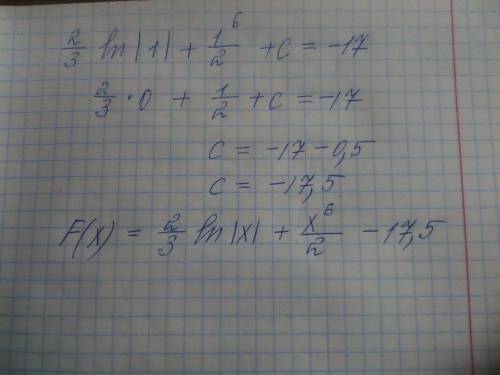 2/3 ln|1| + 1⁶/2 + c = -17
2/3 · 0 + 1/2 + c = -17
c = -17 - 0,5
c = -17,5
F(x) = 2/3 ln|x| + x⁶/2 - 17,5